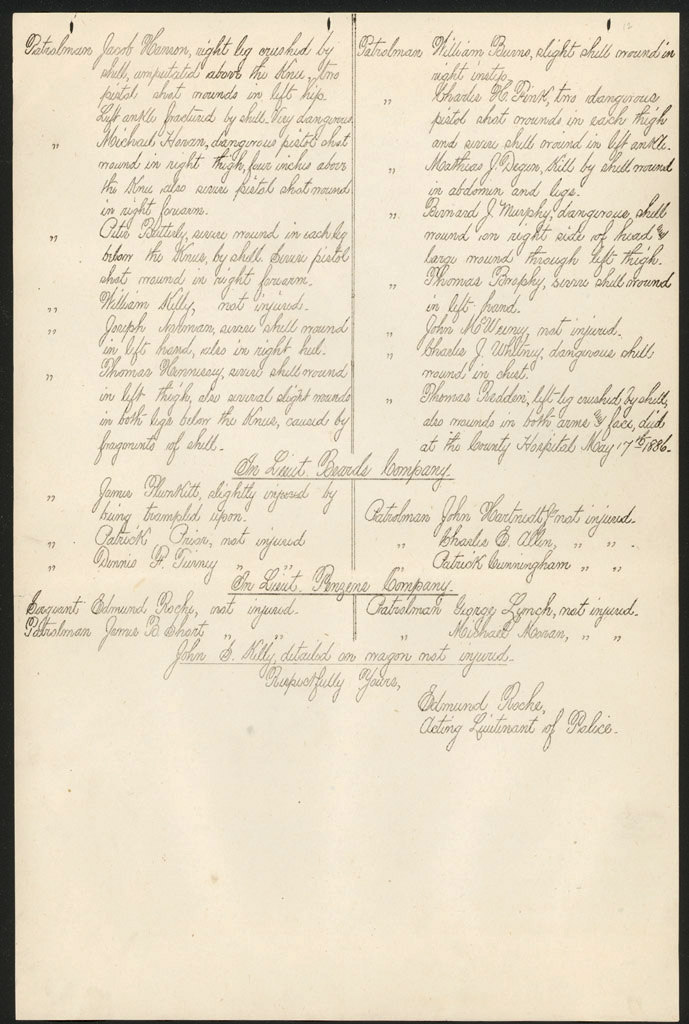 12
Patrolman Jacob Hanson, right leg crushed by
shell, amputated above the Knee, two
pistol shot wounds in left hip.
Left ankle fractured by shell. Very dangerous.
„ Michael Horan, dangerous pistol shot
wound in right thigh, four inches above
the Knee also severe pistol shot wound
in right forearm.
„ Peter Butterly, severe wound in each leg
below the Knee, by shell. Severe pistol
shot wound in right forearm.
„ William Kelly, not injured.
„ Joseph Norman, severe shell wound
in left hand, also in right heel.
„ Thomas Hennessy, severe shell wound
in left thigh, also several slight wounds
in both legs below the Knee, caused by
fragments of shell.
Patrolman William Burns, slight shell wound in
right instep.
„ Charles H. Fink, two dangerous
pistol shot wounds in each thigh
and severe shell wound in left ankle.
„ Mathias J. Degan, Kill by shell wound
in abdomen and legs.
„ Bernard J. Murphy, dangerous, shell
wound on right side of head &
large wound through left thigh.
„ Thomas Brophy, severe shell wound
in left hand.
„ John McWeeny, not injured.
„ Charles J. Whitney, dangerous shell
wound in chest.
„ Thomas Redden, left leg crushed by shell,
also wounds in both arms & face, died
at the County Hospital May 17th 1886.
In Lieut. Beards Company.
„ James Plunkett, slightly injured by
being trampled upon.
„ Patrick Prior, not injured
„ Dennis F. Turney „ „
Patrolman John Hartnett Jr not injured.
„ Charles E. Allen, „ „ .
„ Patrick Cunningham „ „
In Lieut. Penzens Company.
Sergeant Edmund Roche, not injured.
Patrolman James B. Short „ „
Patrolman George Lynch, not injured.
„ Michael Moran, „ „
John S. Kelly, detailed on wagon not injured.
Respectfully Yours,
Edmund Roche,
Acting Lieutenant of Police.